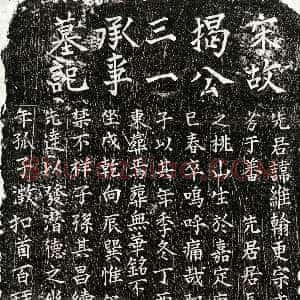 宋故
揭公
三一
承事
墓記
先君諱維翰更宗
先居居
之桃山生於嘉定
巳春卒嗚呼痛哉
子以其年季冬丁
東葬焉葬無銘不
坐戌乾向辰巽惟
禁不祥子孫其昌
先達以發潛德之
年孤子扣首百